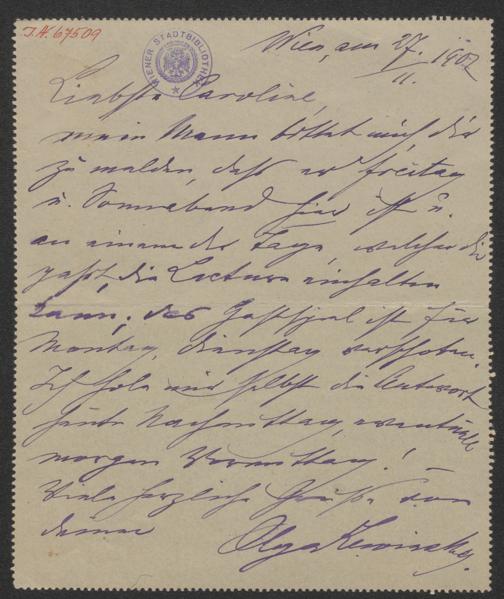 I.N. 67509
WIENER STADTBIBLIOTHEK
Wien, am 27./11. 1902
Liebste Caroline,
mein Mann bittet mich dir
zu melden, daß er Freitag
u. Sonnabend hier ist u.
an einem der Tage, welcher dir
paßt, die Lecture einhalten
kann; das Gastspiel ist für
Montag, Dienstag verschoben.
Ich hole mir selbst die Antwort
heute Nachmittag, eventuell
morgen Vormittag!
Viele herzliche Grüße von
deiner
Olga Lewinsky